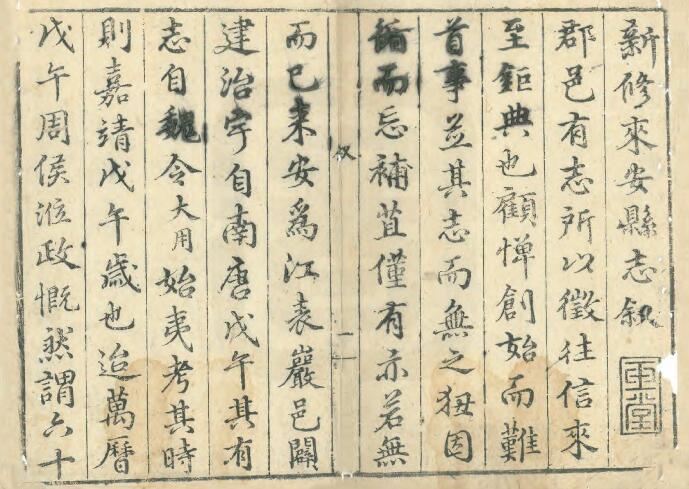 新修來安縣志叙
郡邑有志所以徵往信來
至鉅典也顧憚創始而難
首事並其志而無之狃因
循而忘補苴僅有亦若無
而已来安為江表巖邑闢
建治宇自南唐戊午其有
志自魏令大用始夷考其時
則嘉靖戊午歲也迨萬曆
戊午周侯涖政慨然謂六十
叙
一